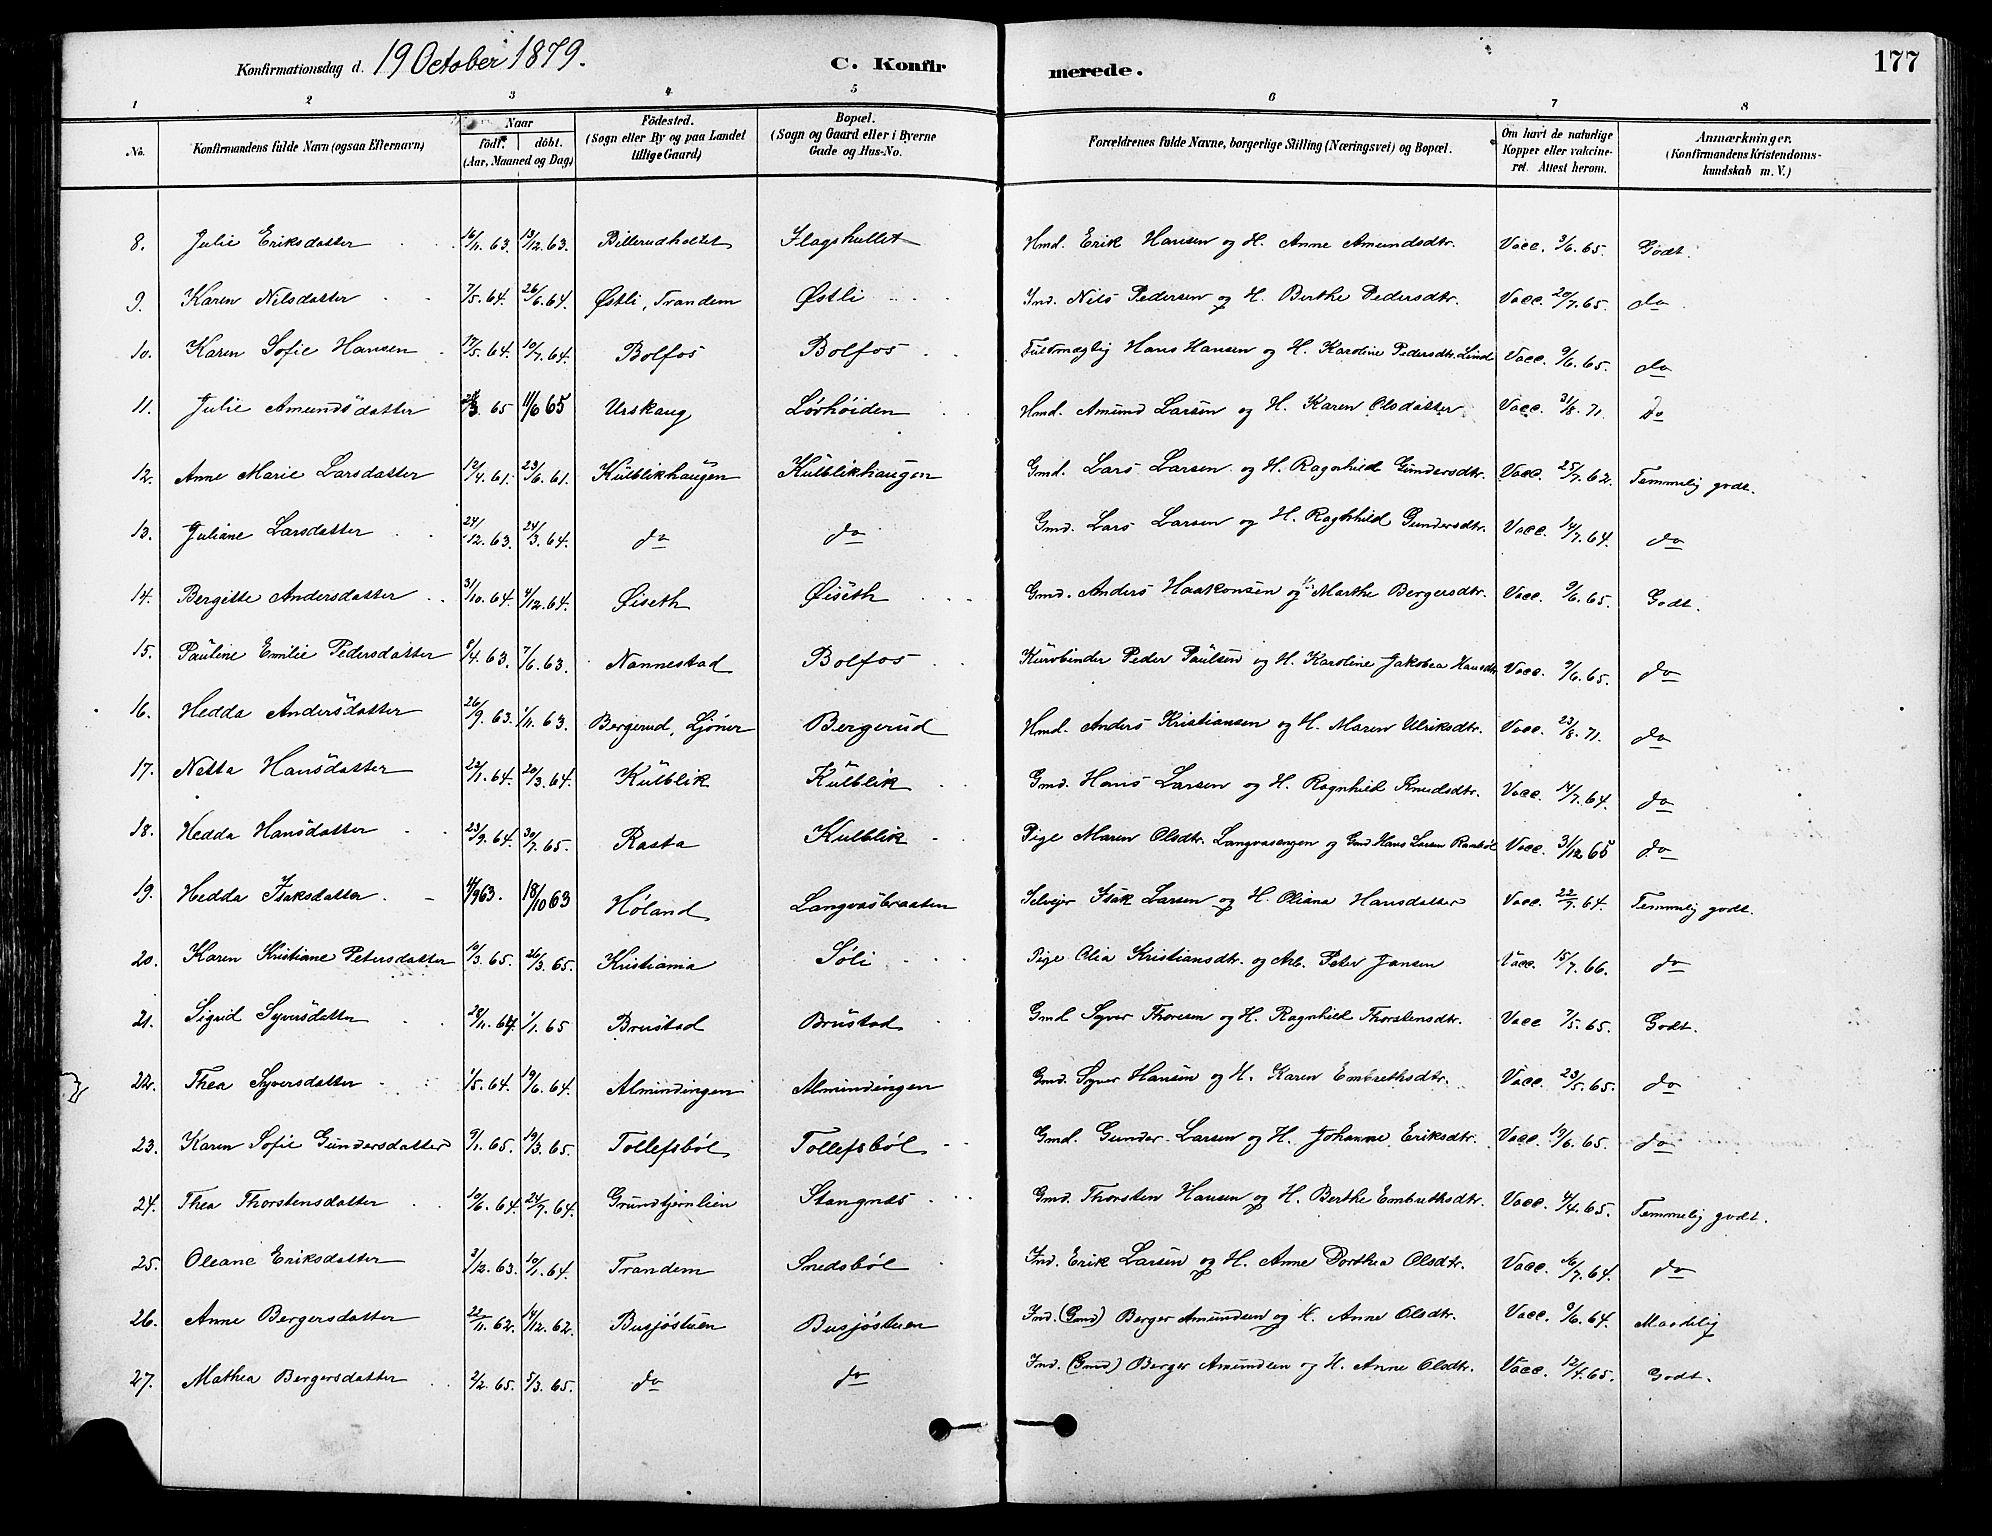 Konfirmationsdag d. 19 October 1879. C. Konfirmerede. 177
1 2 3 4 5 6 7 8
No. Konfirmandens fulde Navn (ogsaa Efternavn) Naar födt. döbt. (Aar, Maaned og Dag) Födested. (Sogn eller By og paa Landet tillige Gaard) Bopæl. (Sogn og Gaard eller i Byerne Gade og Hus-No. Forældrenes fulde Navne, borgerlige Stilling (Næringsvei) og Bopæl. Om havt de naturlige Kopper eller vakcineret. Attest herom. Anmærkninger. (Konfirmandens Kristendomskundskab m. V.)
8. Julie Eriksdatter 16/11. 63. 13/12. 63. Billerudholtet Flagshullet Hmd. Erik Hansen og H. Anne Amundsdtr. Vacc. 3/6. 65. Godt.
9. Karen Nilsdatter 7/5. 64. 26/6. 64. Østli, Trandem Østli Ind. Nils Pedersen og H. Berthe Pedersdtr. Vacc. 20/7. 65. do
10. Karen Sofie Hansen 17/5. 64. 10/7. 64. Bolfos Bolfos Fuldmægtig Hans Hansen og H. Karoline Pedersdtr. Lind Vacc. 9/6. 65. do
11. Julie Amundsdatter 65 11/6 65 Urskaug Lørhøiden Hmd. Amund Larsen og H. Karen Olsdatter Vacc. 31/8. 71. do
12. Anne Marie Larsdatter 12/4. 61. 23/6. 61. Kulblikhaugen Kulblikhaugen Gmd. Lars Larsen og H. Ragnhild Gundersdtr. Vacc. 25/7. 62. Temmelig godt.
13. Juliane Larsdatter 24/12. 63. 24/3. 64. do do Gmd. Lars Larsen og H. Ragnhild Gundersdtr. Vacc. 14/7. 64. do
14. Bergitte Andersdatter 31/10. 64. 4/12. 64. Øiseth Øiseth Gmd. Anders Haakonsen og H. Marthe Bergersdtr. Vacc. 9/6. 65. Godt.
15. Pauline Emilie Pedersdatter 8/4. 63. 7/6. 63. Nannestad Bolfos Kurvbinder Peder Paulsen og H. Karoline Jakobea Hansdtr Vacc. 9/6. 65. do
16. Hedda Andersdatter 26/9. 63. 1/11. 63. Bergerud, Ljöner Bergerud Hmd. Anders Kristiansen og H. Maren Ulriksdtr. Vacc. 23/8. 71. do
17. Netta Hansdatter 22/1. 64. 20/3. 64. Kulblik Kulblik Gmd. Hans Larsen og H. Ragnhild Knudsdtr. Vacc. 14/7. 64. do
18. Hedda Hansdatter 23/9. 64. 30/7. 65. Rasta Kulblik Pige Maren Olsdtr. Langvasengen og Gmd Hans Larsen Vacc. 31/12 65 do
19. Hedda Isaksdatter 63. 18/10 63 Høland Langvasbraaten Selveier Isak Larsen og H. Oliana Hansdatter Vacc. 22/7. 64. Temmelig godt.
20. Karen Kristiane Petersdatter 10/3. 65. 26/3. 65. Kristiania Søli Pige Olia Kristiansdtr. og Arb. Peter Jansen Vacc. 15/7. 66. do
21. Sigrid Syversdatter 28/11. 64 1/1. 65 Brustad Brustad Gmd Syver Thoresen og H. Ragnhild Thorstensdtr. Vacc 7/5. 65. Godt.
22. Thea Syversdatter 1/5. 64. 19/6. 64. Almindingen Almindingen Gmd. Syver Hansen og H. Karen Embrethsdtr. Vacc. 23/5. 65. do
23. Karen Sofie Gundersdatter 9/1. 65. 19/3. 65. Tollefsbøl Tollefsbøl Gmd. Gunder Larsen og H. Johanne Eriksdtr. Vacc. 19/6. 65. do
24. Thea Thorstensdatter 10/6. 64. 24/7. 64. Grundtjernlien Stangnæs Gmd. Thorsten Hansen og H. Berthe Embrethsdtr. Vacc. 4/4. 65. Temmelig godt.
25. Oleane Eriksdatter 3/12. 63. 10/1. 64. Trandem Smedsbøl Ind. Erik Larsen og H. Anne Dorthea Olsdtr. Vacc. 16/7. 64. do
26. Anne Bergersdatter 22/11. 62. 14/12. 62. Busjøstuen Busjøstuen Ind. (Gmd) Berger Amundsen og H. Anne Olsdtr. Vacc. 9/6. 64. Maadelig
27. Mathea Bergersdatter 2/2. 65. 5/3. 65. do do Ind. (Gmd) Berger Amundsen og H. Anne Olsdtr. Vacc. 12/4. 65. Godt.